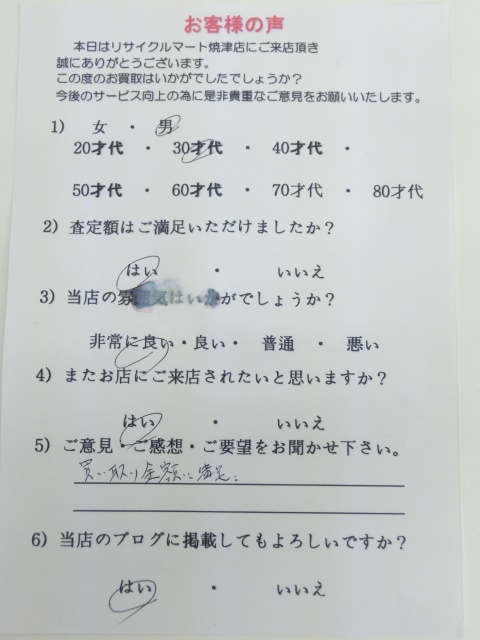 お客様の声
本日はリサイクルマート焼津店にご来店頂き
誠にありがとうございます。
この度のお買取はいかがでしたでしょうか？
今後のサービス向上の為に是非貴重なご意見をお願いいたします。
1) 女 ・ 男
20才代 ・ 30才代 ・ 40才代 ・
50才代 ・ 60才代 ・ 70才代 ・ 80才代
2) 査定額はご満足いただけましたか？
はい ・ いいえ
3) 当店の雰囲気はいかがでしょうか？
非常に良い・良い・ 普通 ・ 悪い
4) またお店にご来店されたいと思いますか？
はい ・ いいえ
5) ご意見・ご感想・ご要望をお聞かせ下さい。
買い取り金額に満足。
6) 当店のブログに掲載してもよろしいですか？
はい ・ いいえ